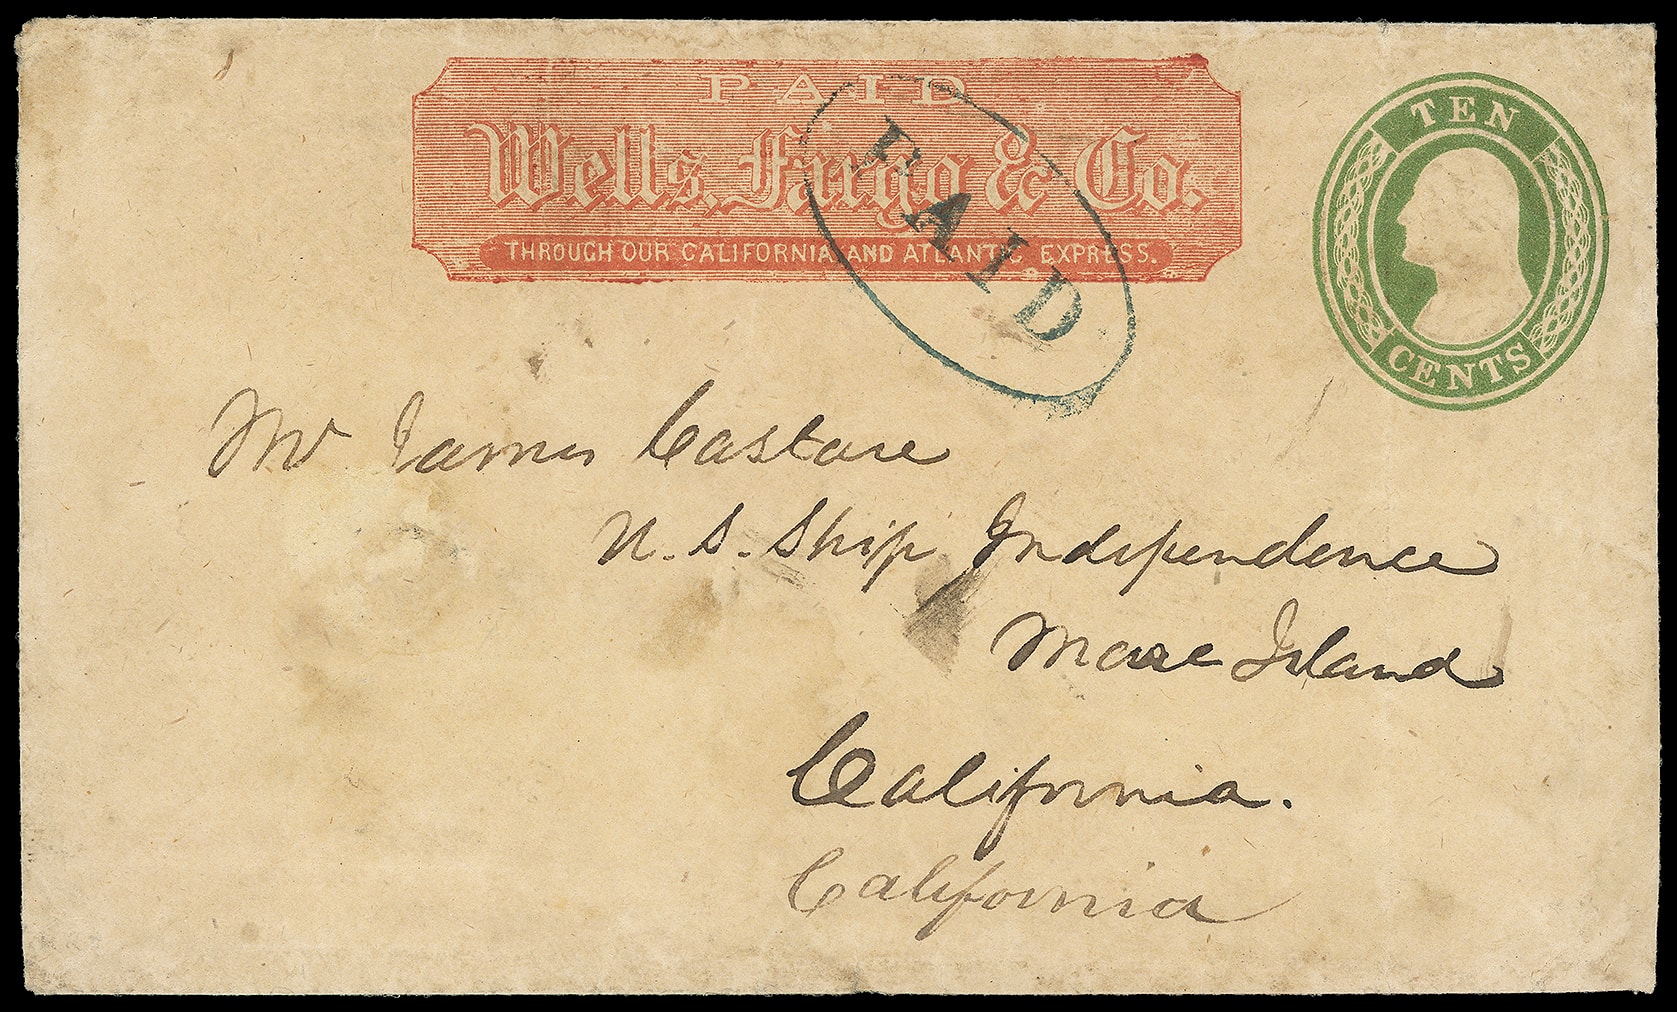 PAID
Wells, Fargo & Co.
THROUGH OUR CALIFORNIA AND ATLANTIC EXPRESS.
PAID
TEN
CENTS
Mr James Castare
U. S. Ship Independence
Mare Island
California.
California